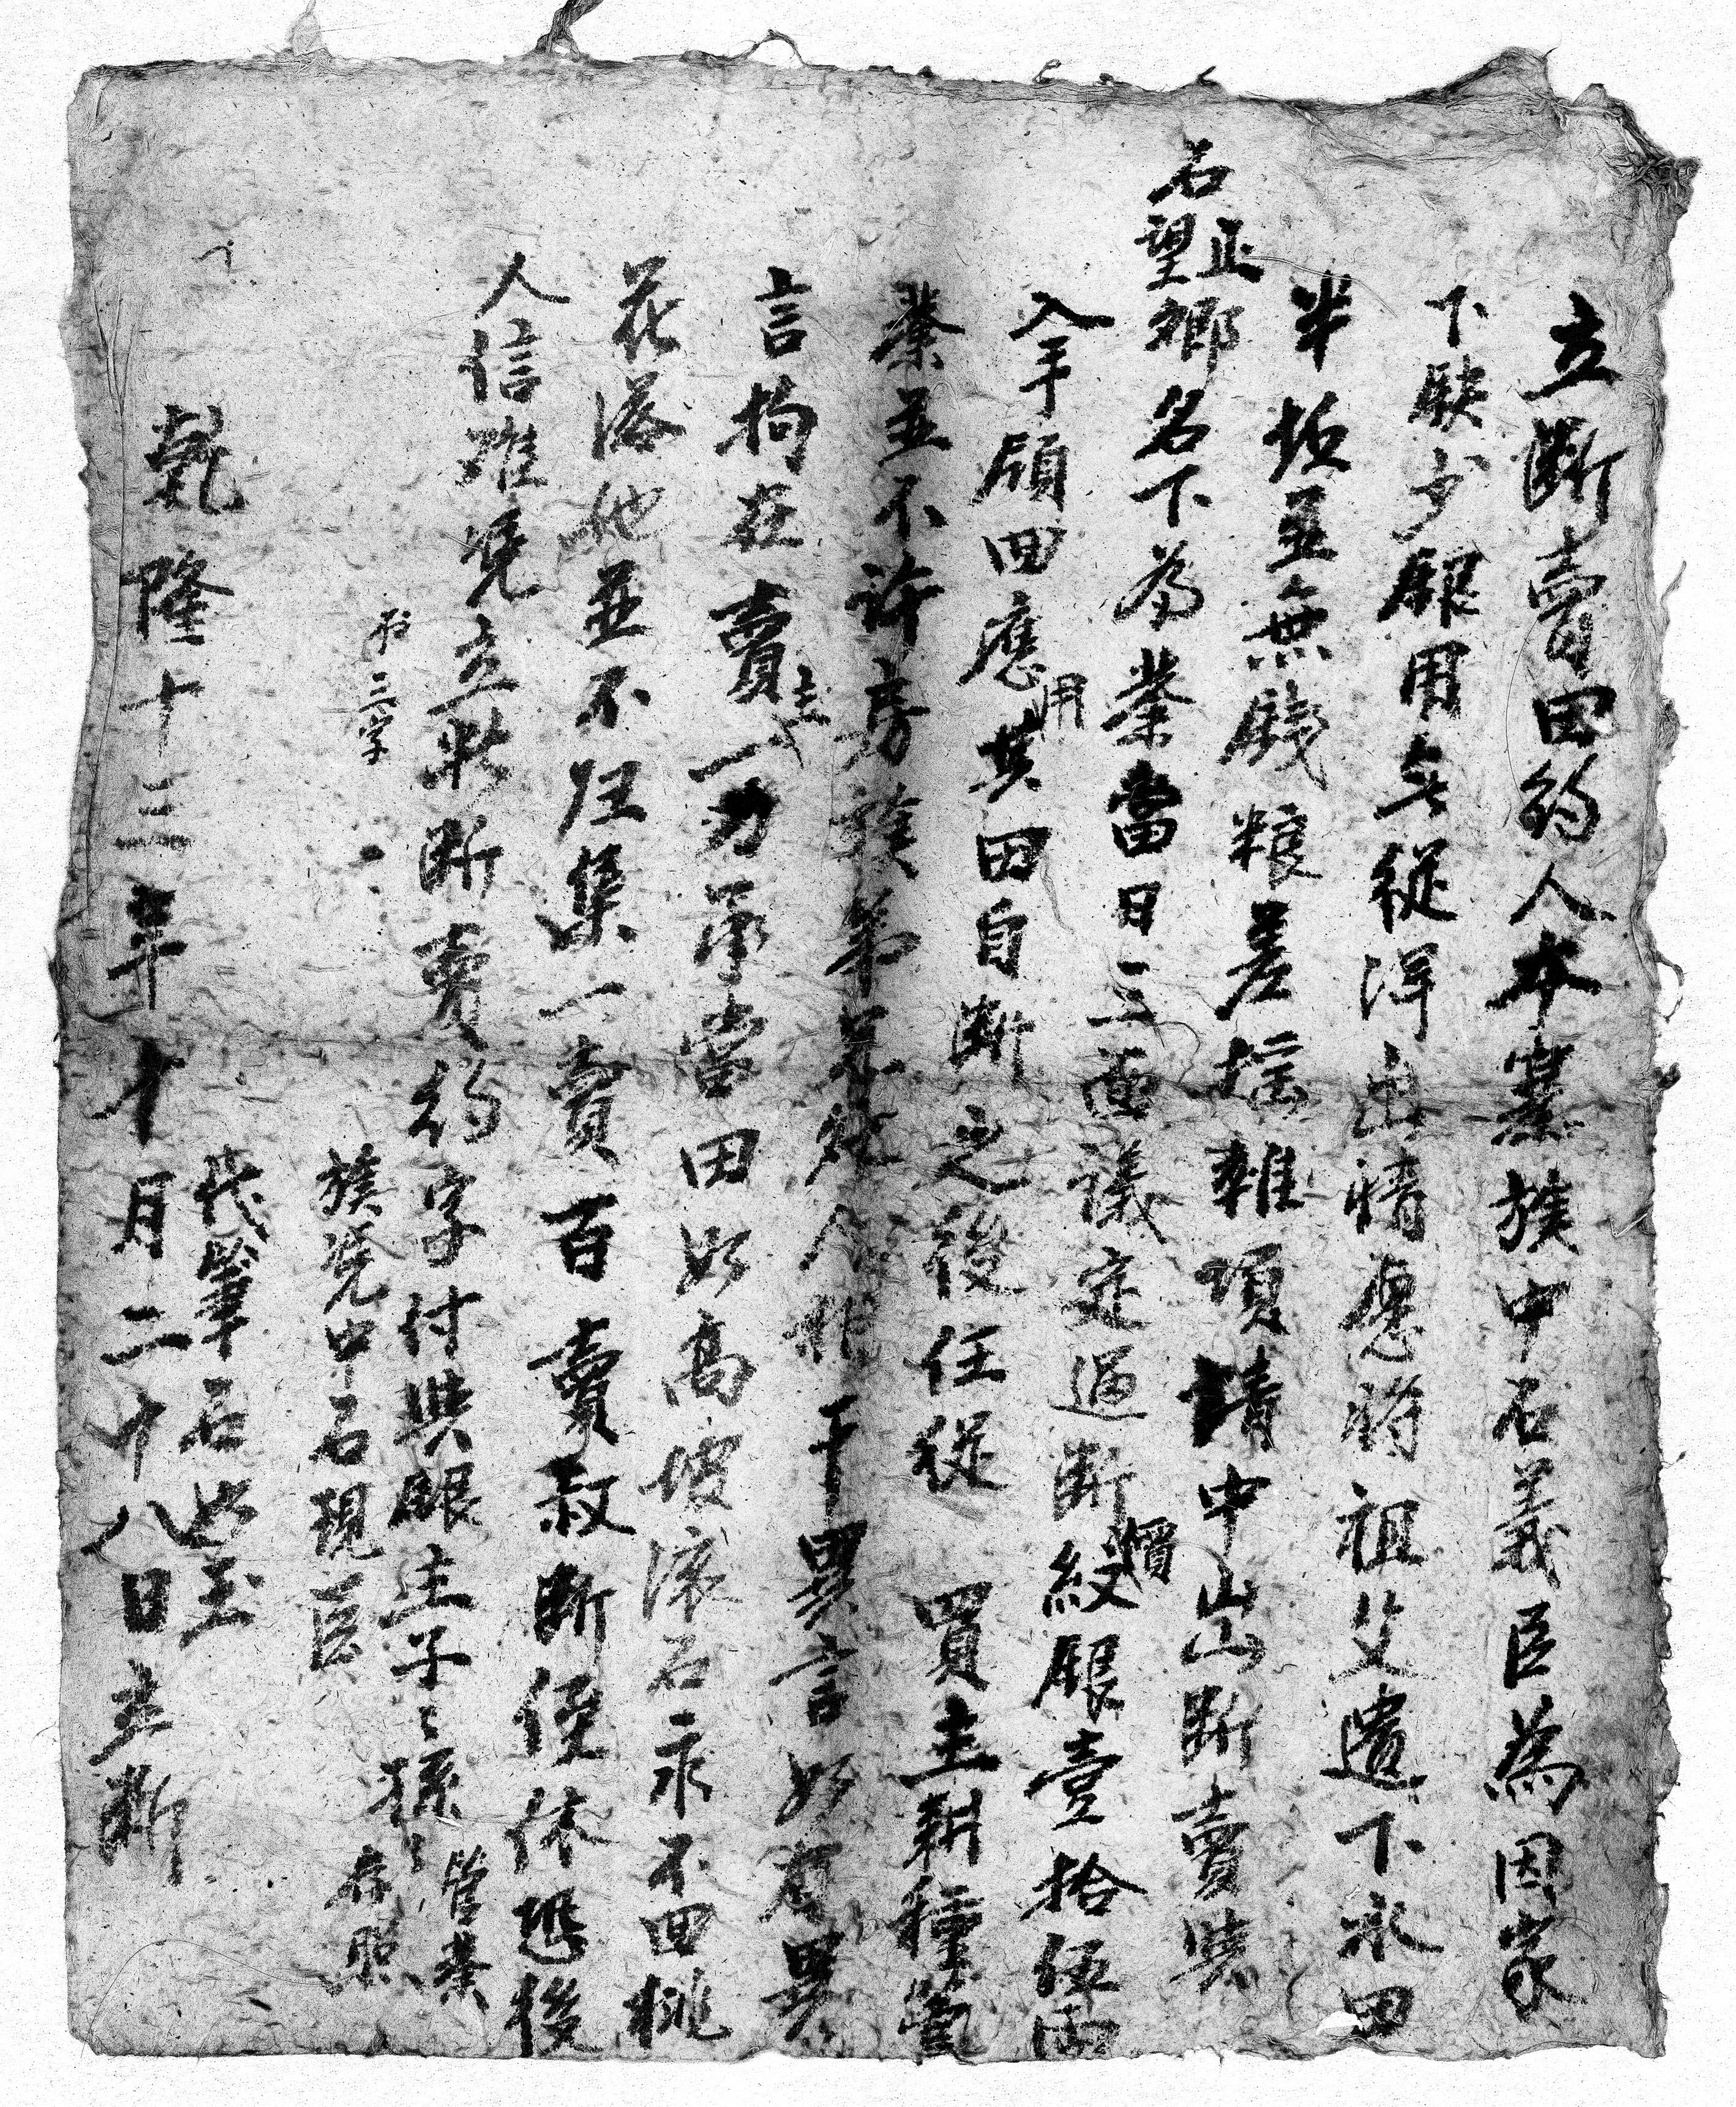 立断賣田約人本寨族中石義臣為因家
下缺少銀用無從淂出情愿將祖父遺下水田
半坵並無錢粮差徭雜項請中山山断賣與
石望正鄉名下為業當日三面議定過断價紋銀壹拾伍両
入手領回應用其田自断之後任從買主耕種管
業並不許房族弟兄外人相干異言如有異
言拘在賣主一力承當田如髙坡滾石永不回桃
花落地並不歸集一賣百賣殺断侄休恐後
人信难凴立此断賣約字付與銀主子子孫孫管業存照
添三字
族凴中石現臣
代筆石必玉
乾隆十三年十月二十八日立断